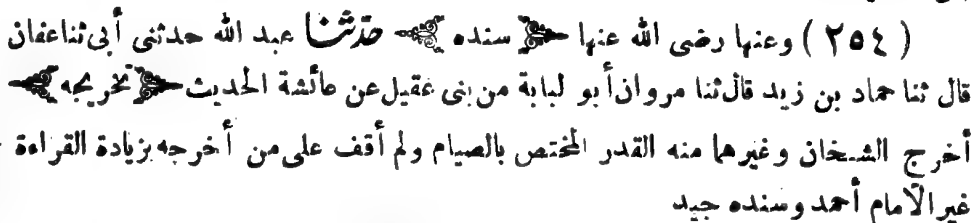 ( ٢٥٤ ) وعنها رضى الله عنها سنده حدّثنا عبد الله حدثنى أبى ثنا عفان
قال ثنا حماد بن زيد قال ثنا مروان أبو لبابة من بنى عقيل عن عائشة الحديث تخريجه
أخرج الشيخان وغيرهما منه القدر المختص بالصيام ولم أقف على من أخرجه بزيادة القراءة
غير الأمام أحمد وسنده جيد